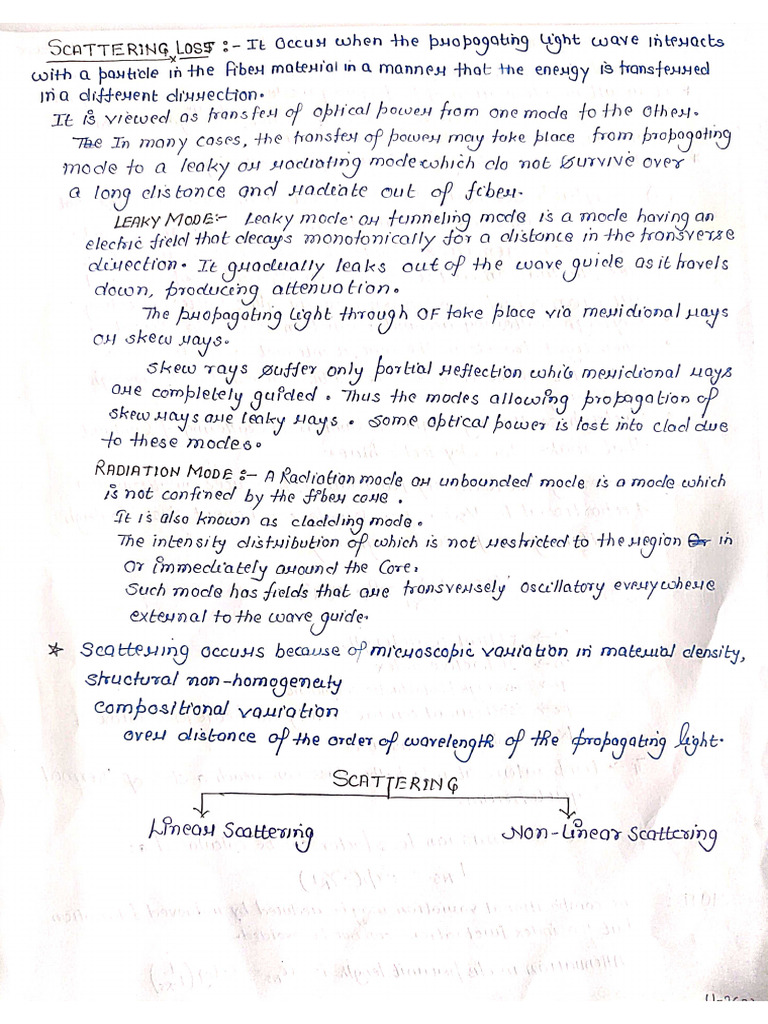 SCATTERING LOSS :- It occur when the propagating light wave interacts
with a particle in the fiber material in a manner that the energy is transferred
in a different direction.
It is viewed as transfer of optical power from one mode to the other.
The In many cases, the transfer of power may take place from propagating
mode to a leaky or radiating mode which do not survive over
a long distance and radiate out of fiber.
LEAKY MODE:- Leaky mode or tunneling mode is a mode having an
electric field that decays monotonically for a distance in the transverse
direction. It gradually leaks out of the wave guide as it travels
down, producing attenuation.
The propagating light through OF take place via meridional rays
or skew rays.
Skew rays suffer only partial reflection while meridional rays
are completely guided. Thus the modes allowing propagation of
skew rays are leaky rays. Some optical power is lost into clad due
to these modes.
RADIATION MODE :- A Radiation mode or unbounded mode is a mode which
is not confined by the fiber core.
It is also known as cladding mode.
The intensity distribution of which is not restricted to the region or in
or immediately around the core.
Such mode has fields that are transversely oscillatory everywhere
external to the wave guide.
* Scattering occurs because of microscopic variation in material density,
structural non-homogeneity
compositional variation
over distance of the order of wavelength of the propagating light.
SCATTERING
Linear Scattering Non-Linear Scattering